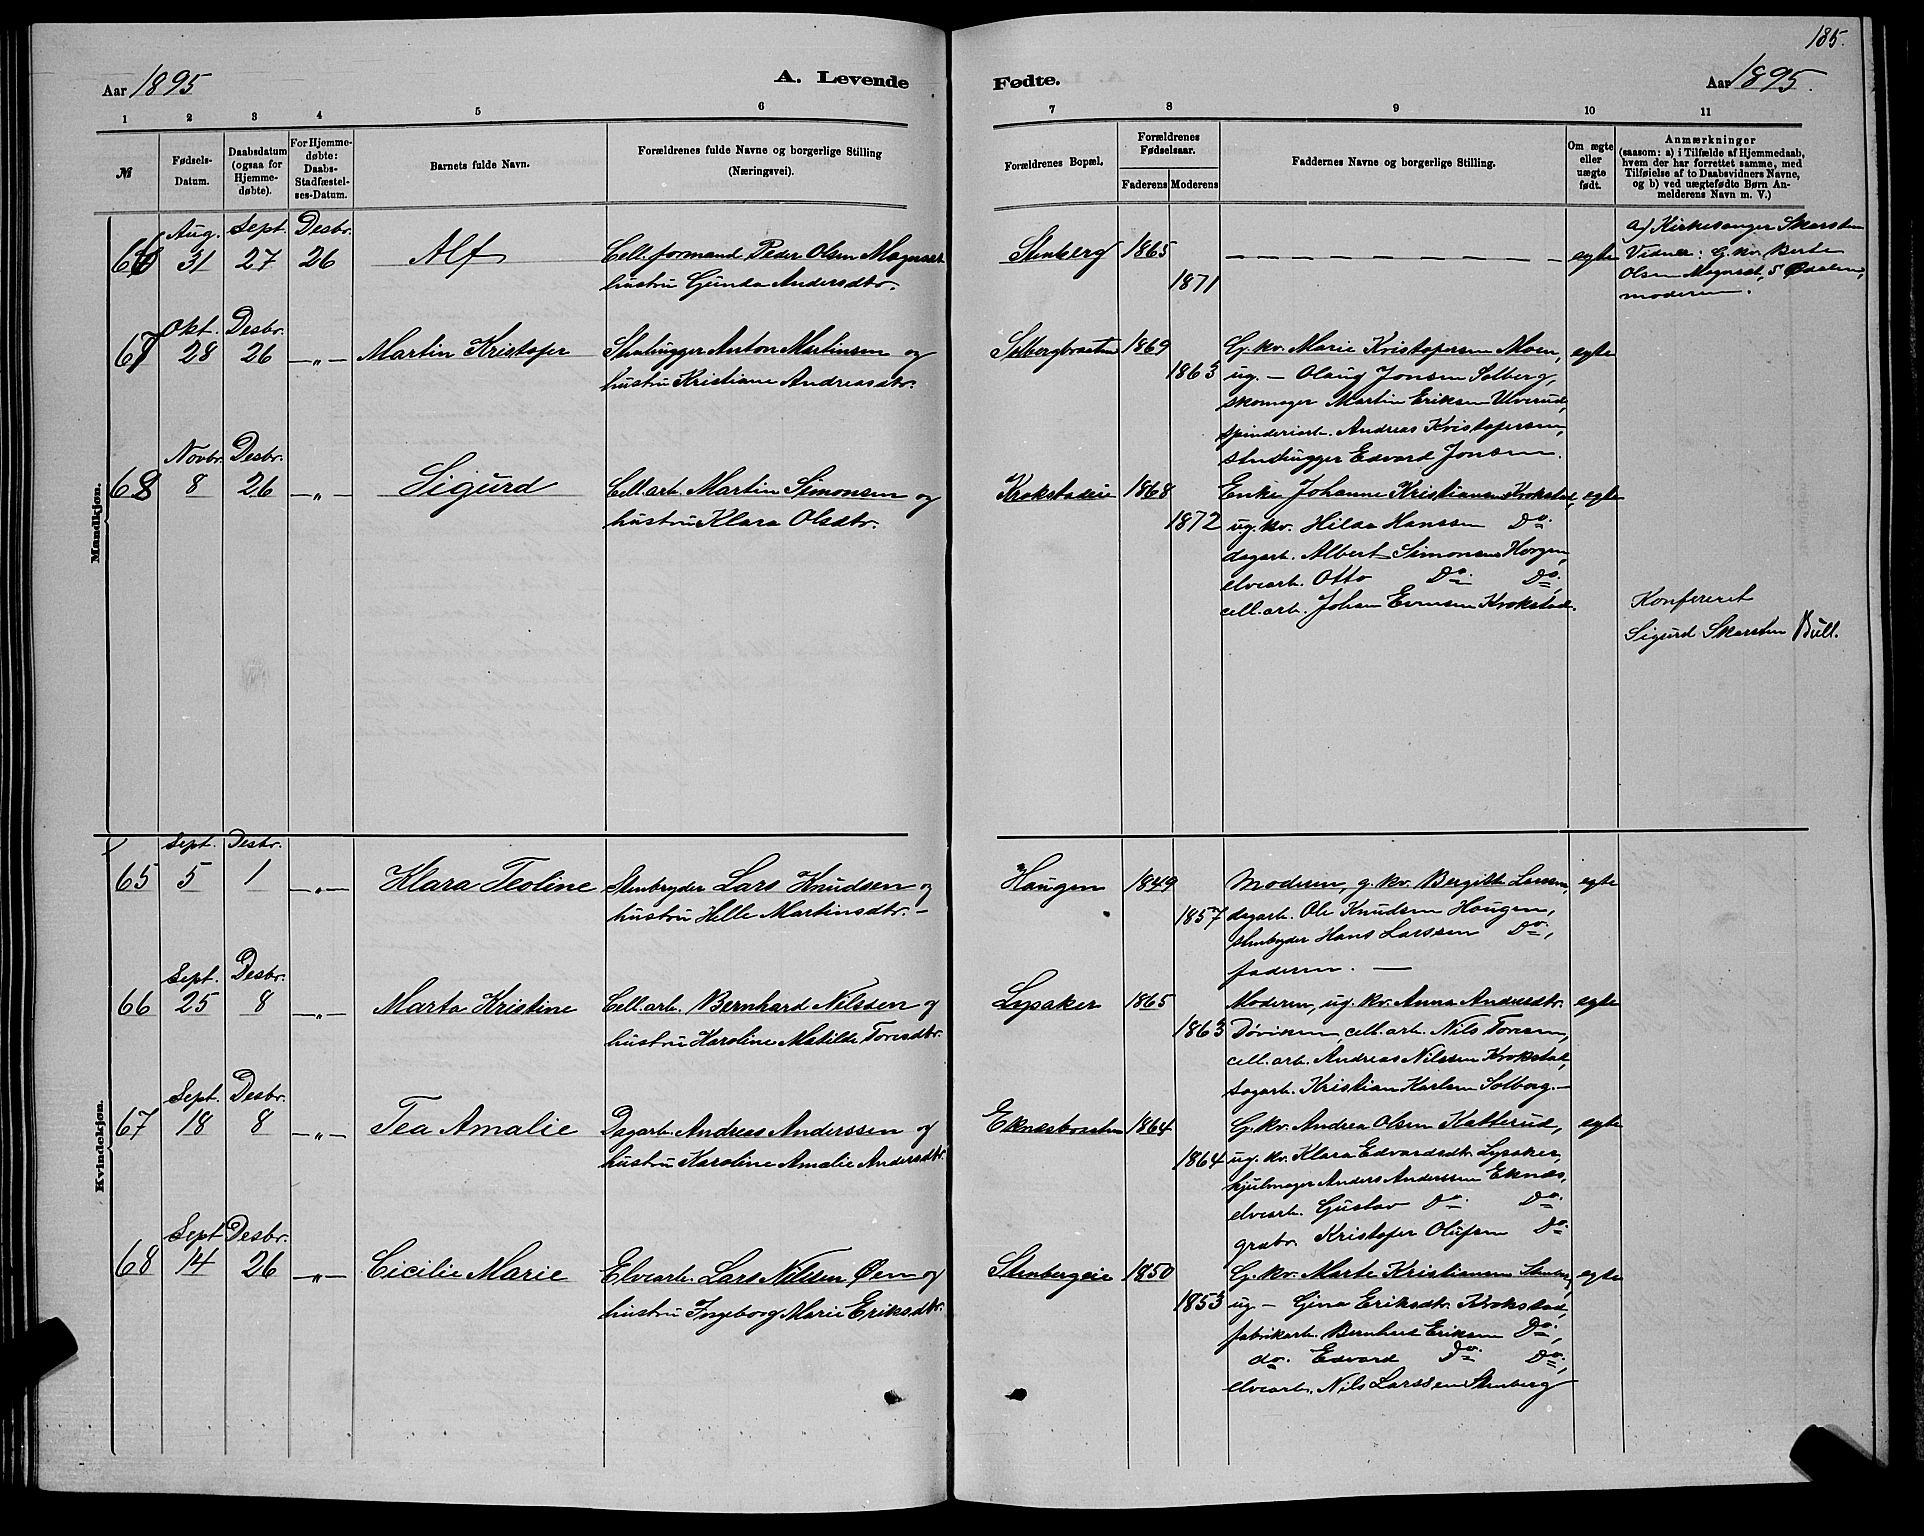 185.
Aar 1895
A. Levende
Fødte.
Aar 1895.
1 2 3 4 5 6
7 8 9 10 11
№
Fødsels-
Datum.
Daabsdatum
(ogsaa for
Hjemme-
døbte).
For Hjemme-
døbte:
Daabs-
Stadfæstel-
ses-Datum.
Barnets fulde Navn.
Forældrenes fulde Navne og borgerlige Stilling
(Næringsvei).
Forældrenes Bopæl.
Forældrenes
Fødselsaar.
Faderens Moderens
Faddernes Navne og borgerlige Stilling.
Om ægte
eller
uægte
født.
Anmærkninger
(saasom: a) i Tilfælde af Hjemmedaab,
hvem der har forrettet samme, med
Tilføielse af to Daabsvidners Navne,
og b) ved uægtefødte Børn An-
melderens Navn m. V.)
Mandkjøn.
Aug. Sept. Desbr.
66 31 27 26 Alf Celleformand Peder Olsen
hustru Gunda Andersdtr.
Stenberg 1865 — — — — — — — — — egte
1871
a) Kirkesanger Skarsten
Vidner: G. kv. Berte
Olsen S. Ødalen,
moderen.
Okt. Desbr.
67 28 26 —„— Martin Kristofer Stenhugger Anton Martinsen og
hustru Kristiane Andreasdtr.
Solbergbraaten 1869 G. kv. Marie Kristofersen Moen, egte
1863 ug. — Olaug Jonsen Solberg,
skomager Martin Eriksen Ulverud,
spinderiarb. Andreas Kristofersen,
stenhugger Edvard Jonsen.
Novbr. Desbr.
68 8 26 —„— Sigurd Cell.arb. Martin Simonsen og
hustru Klara Olsdtr.
Krokstadeie 1868 Enke Johanne Kristiansen Krokstad, egte
1872 ug. kv. Hilda Hanssen Do.
dagarb. Albert Simonsen Horgen,
elvearb. Otto Do. Do.
cell.arb. Johan Evensen Krokstad.
Konfereret
Sigurd Skarsten Bull.
Kvindekjøn.
Sept. Desbr.
65 5 1 —„— Klara Teoline Stenbryder Lars Knudsen og
hustru Helle Martinsdtr. —
Haugen 1849 Moderen, g. kv. Bergitte Larssen, egte
1857 dagarb. Ole Knudsen Haugen,
stenbryder Hans Larssen Do.,
faderen. —
Sept. Desbr.
66 25 8 —„— Marta Kristine Cell.arb. Bernhard Nilssen og
hustru Karoline Matilde Toresdtr.
Lysaker 1865 Moderen, ug. kv. Anna Andersdtr. egte
1863 Døviken, cell.arb. Nils Toresen,
cell.arb. Andreas Nilssen Krokstad,
sagarb. Kristian Karlsen Solberg. —
Sept. Desbr.
67 18 8 —„— Tea Amalie Dagarb. Andreas Anderssen og
hustru Karoline Amalie Andersdtr.
Eknesbraaten 1864 G. kv. Andrea Olsen Katterud, egte
1864 ug. kv. Klara Edvardsdtr. Lysaker,
hjulmager Anders Anderssen Eknes,
elvearb. Gustav Do. Do.
grabr. Kristofer Olufsen Do.
Sept Desbr.
68 14 26 —„— Cicilie Marie Elvearb. Lars Nilssen Øen og
hustru Ingeborg Marie Eriksdtr.
Stenbergeie 1850 G. kv. Marte Kristiansen Stenberg, egte
1853 ug — Gina Eriksdtr. Krokstad,
fabrikarb. Bernhard Eriksen Do.,
do. Edvard Do. Do.,
elvearb. Nils Larssen Stenberg